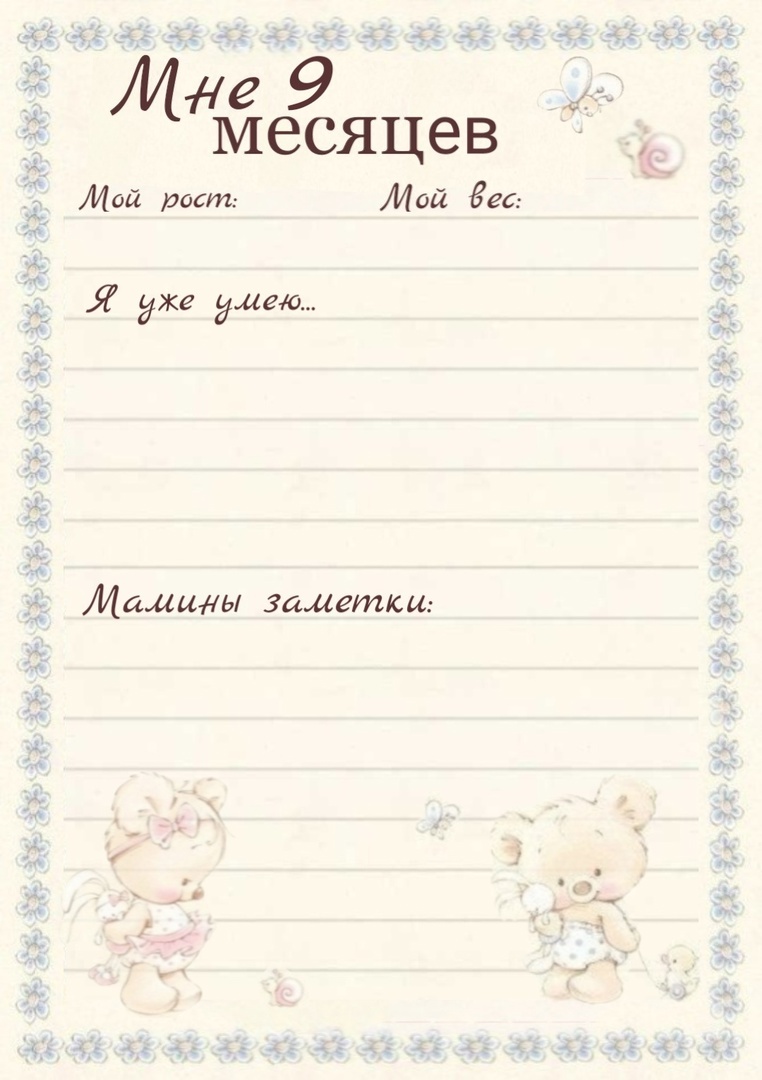 Мне 9
месяцев
Мой рост: Мой вес:
Я уже умею...
Мамины заметки: